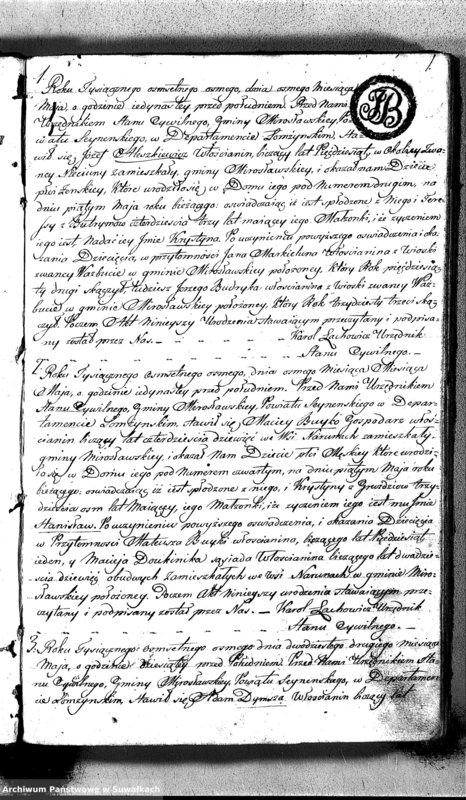 1
1. Roku Tysiącznego osmsetnego osmego, dnia osmego Miesiąca
Maja, o godzinie iedynastey przed południem. Przed Nami
Urzędnikiem Stanu Cywilnego, Gminy Mirosławskiey, Po
wiatu Seynenskiego, w Departamencie Łomzynskim, Sta
wił się Jozef Aleszkiewicz Włościanin, bieżący lat Pięćdziesiąt, w Okolicy
ney Nieciuny zamieszkały, gminy Mirosławskiey, i okazał nam Dziecie
płci Żenskiey, które urodziło się w Domu iego pod Numerem drugim, na
dniu piątym Maja roku bieżącego: oswiadczaiąc iż iest spłodzone z Niego i Tere
sy z Butrymów czterdziescia trzy lat maiącey iego Małżonki, i że życzeniem
iego iest Nadać iey Jmie Krystyna. Po uczynieniu powyższego oswiadczenia i oka
zania Dziecięcia, w przytomności Jana Markieluna Włościanina z Wioski
zwaney Warbucie w gminie Mirosławskiey położoney, który Rok pięćdziesią
ty drugi skączył, tudzież Jerzego Budryka włoscianina z wioski zwaney War
bucie w gminie Mirosławskiey położoney, który Rok trzydziesty trzeci ską
czył. Poczem Akt Ninieyszy Urodzenia stawaiącym przeczytany i podpisa
ny został przez Nas. — Karol Lachowicz Urzędnik
Stanu Cywilnego. —
Roku Tysiącznego osmsetnego osmego, dnia osmego Miesiąca Miesiąca
Maja, o godzinie iedynastey przed południem. Przed Nami Urzędnikiem
Stanu Cywilnego, Gminy Mirosławskiey, Powiatu Seynenskiego w Depar
tamencie Łomzynskim, stawił się Maciey Buyko Gospodarz włoś
cianin bieżący lat czterdziescia dziewięć we Wsi Narunach zamieszkały,
gminy Mirosławskiey, i okazał Nam Dziecie płci Męskiey które urodzi
ło się w Domu iego pod Numerem czwartym, na dniu piątym Maja roku
bieżącego: oswiadczaiąc iż iest spłodzone z niego, i Krystyny z Gwozdziow trzy
dziescia osm lat Maiącey, iego Małżonki, iż życzeniem iego iest mu Jmie
Stanisław. Po uczynieniu powyższego oswiadczenia, i okazania Dziecięcia
w Przytomności Mateusza Buyko włoscianina, bieżącego lat Pięćdziesiąt
ieden, y Macieja Doukinika sąsiada Włościanina bieżącego lat dwadzie
scia dziewięć obudwych Zamieszkałych we wsi Narunach w gminie Miro
sławskiey położoney. Poczem Akt Ninieyszy urodzenia stawaiącym prze
czytany i podpisany został przez Nas. — Karol Lachowicz Urzędnik
Stanu Cywilnego. —
3. Roku Tysiącznego osmsetnego osmego dnia dwudziestego drugiego miesiąca
Maja, o godzinie dziesiątey przed Południem. Przed Nami Urzędnikiem Sta
nu Cywilnego, Gminy Mirosławskiey, Powiatu Seynenskiego, w Departamen
cie Łomzynskim, stawił się Adam Dymsza Włoscianin bieżący lat
Archiwum Państwowe w Suwałkach